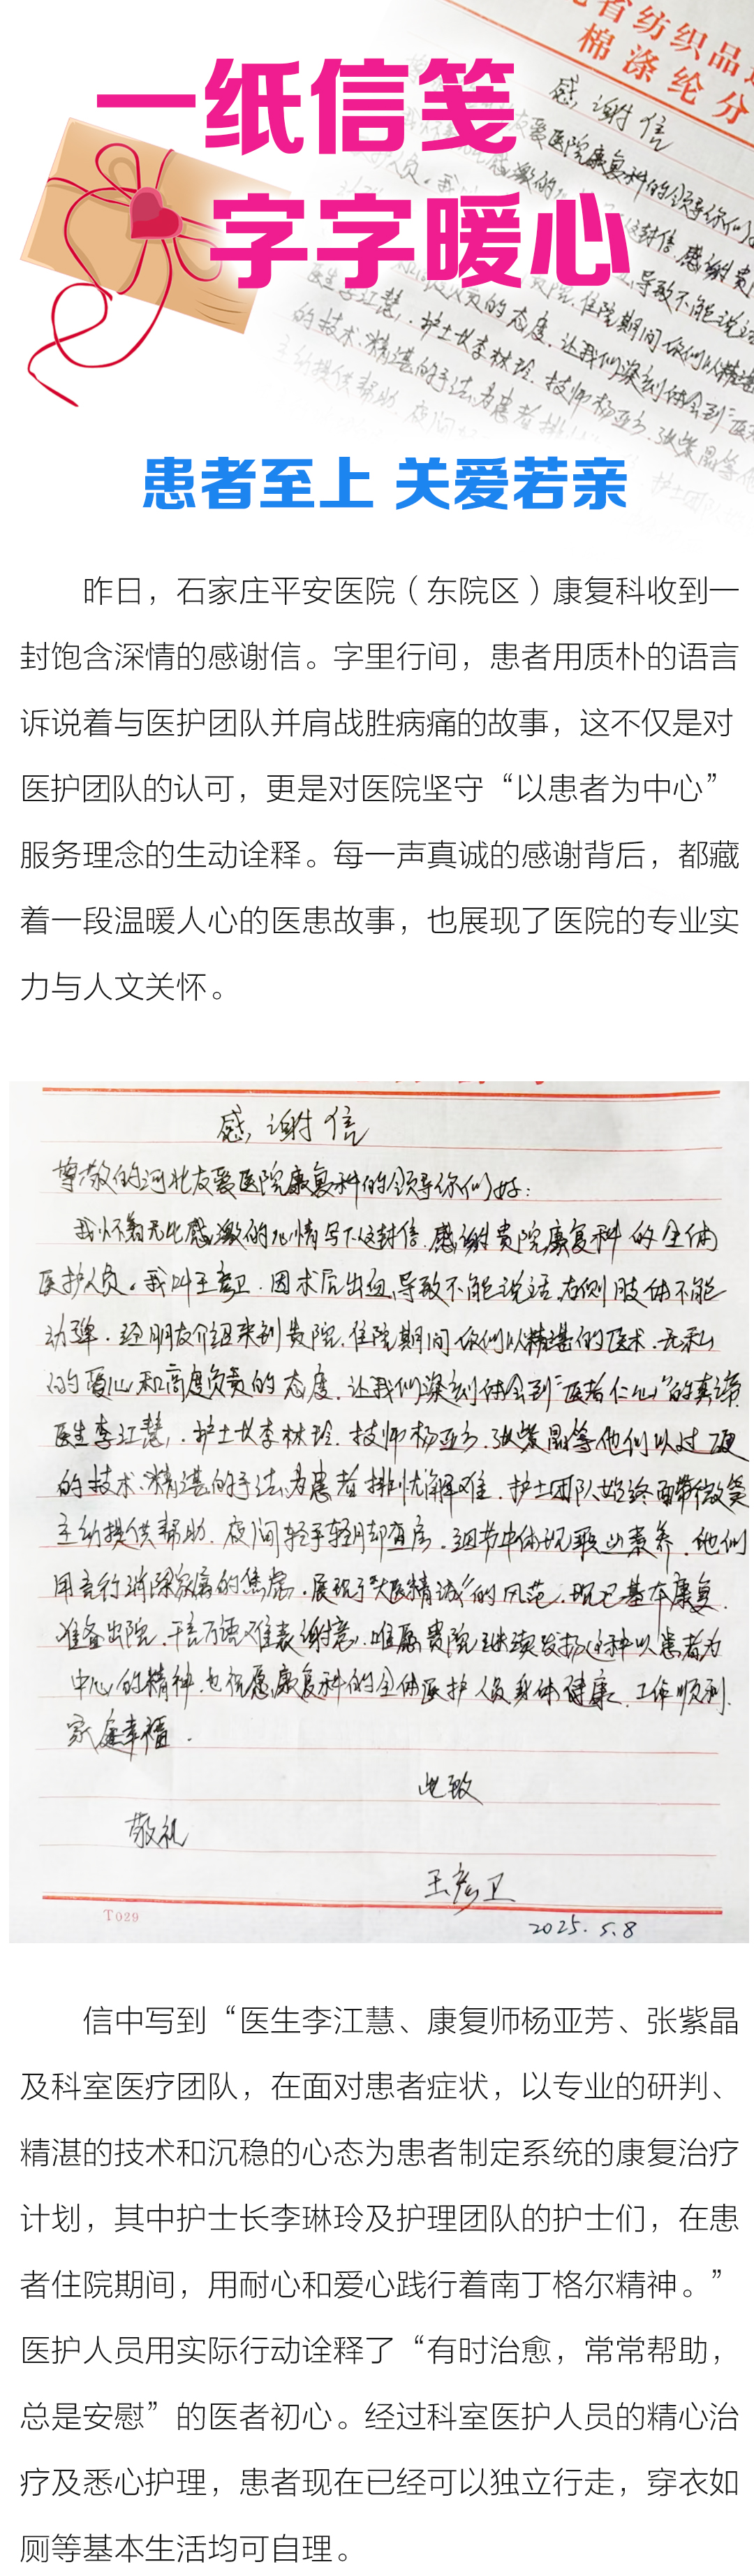 省纺织品
棉涤纶分
一纸信笺
字字暖心
患者至上 关爱若亲
昨日，石家庄平安医院（东院区）康复科收到一
封饱含深情的感谢信。字里行间，患者用质朴的语言
诉说着与医护团队并肩战胜病痛的故事，这不仅是对
医护团队的认可，更是对医院坚守“以患者为中心”
服务理念的生动诠释。每一声真诚的感谢背后，都藏
着一段温暖人心的医患故事，也展现了医院的专业实
力与人文关怀。
感谢信
尊敬的河北友爱医院康复科的领导你们好：
我怀着无比感激的心情写下这封信．感谢贵院康复科的全体
医护人员。我叫王彦卫．因术后出血，导致不能说话．右侧肢体不能
动弹．经朋友介绍来到贵院．住院期间你们以精湛的医术．无私
的爱心和高度负责的态度．让我们深刻体会到“医者仁心”的真谛．
医生李江慧，．护士长李林玲．技师杨亚方．张紫晶等他们以过硬
的技术、精湛的手法为患者排忧解难．护士团队始终面带微笑
主动提供帮助．夜间轻手轻脚查房．细节中体现职业素养．他们
用言行消除家属的焦虑．展现了“大医精诚”的风范．现已基本康复．
准备出院．千言万语难表谢意．唯愿贵院继续发扬这种以患者为
中心的精神．也祝愿康复科的全体医护人员身体健康．工作顺利．
家庭幸福．
此致
敬礼
王彦卫
T029
2025.5.8
信中写到“医生李江慧、康复师杨亚芳、张紫晶
及科室医疗团队，在面对患者症状，以专业的研判、
精湛的技术和沉稳的心态为患者制定系统的康复治疗
计划，其中护士长李琳玲及护理团队的护士们，在患
者住院期间，用耐心和爱心践行着南丁格尔精神。”
医护人员用实际行动诠释了“有时治愈，常常帮助，
总是安慰”的医者初心。经过科室医护人员的精心治
疗及悉心护理，患者现在已经可以独立行走，穿衣如
厕等基本生活均可自理。